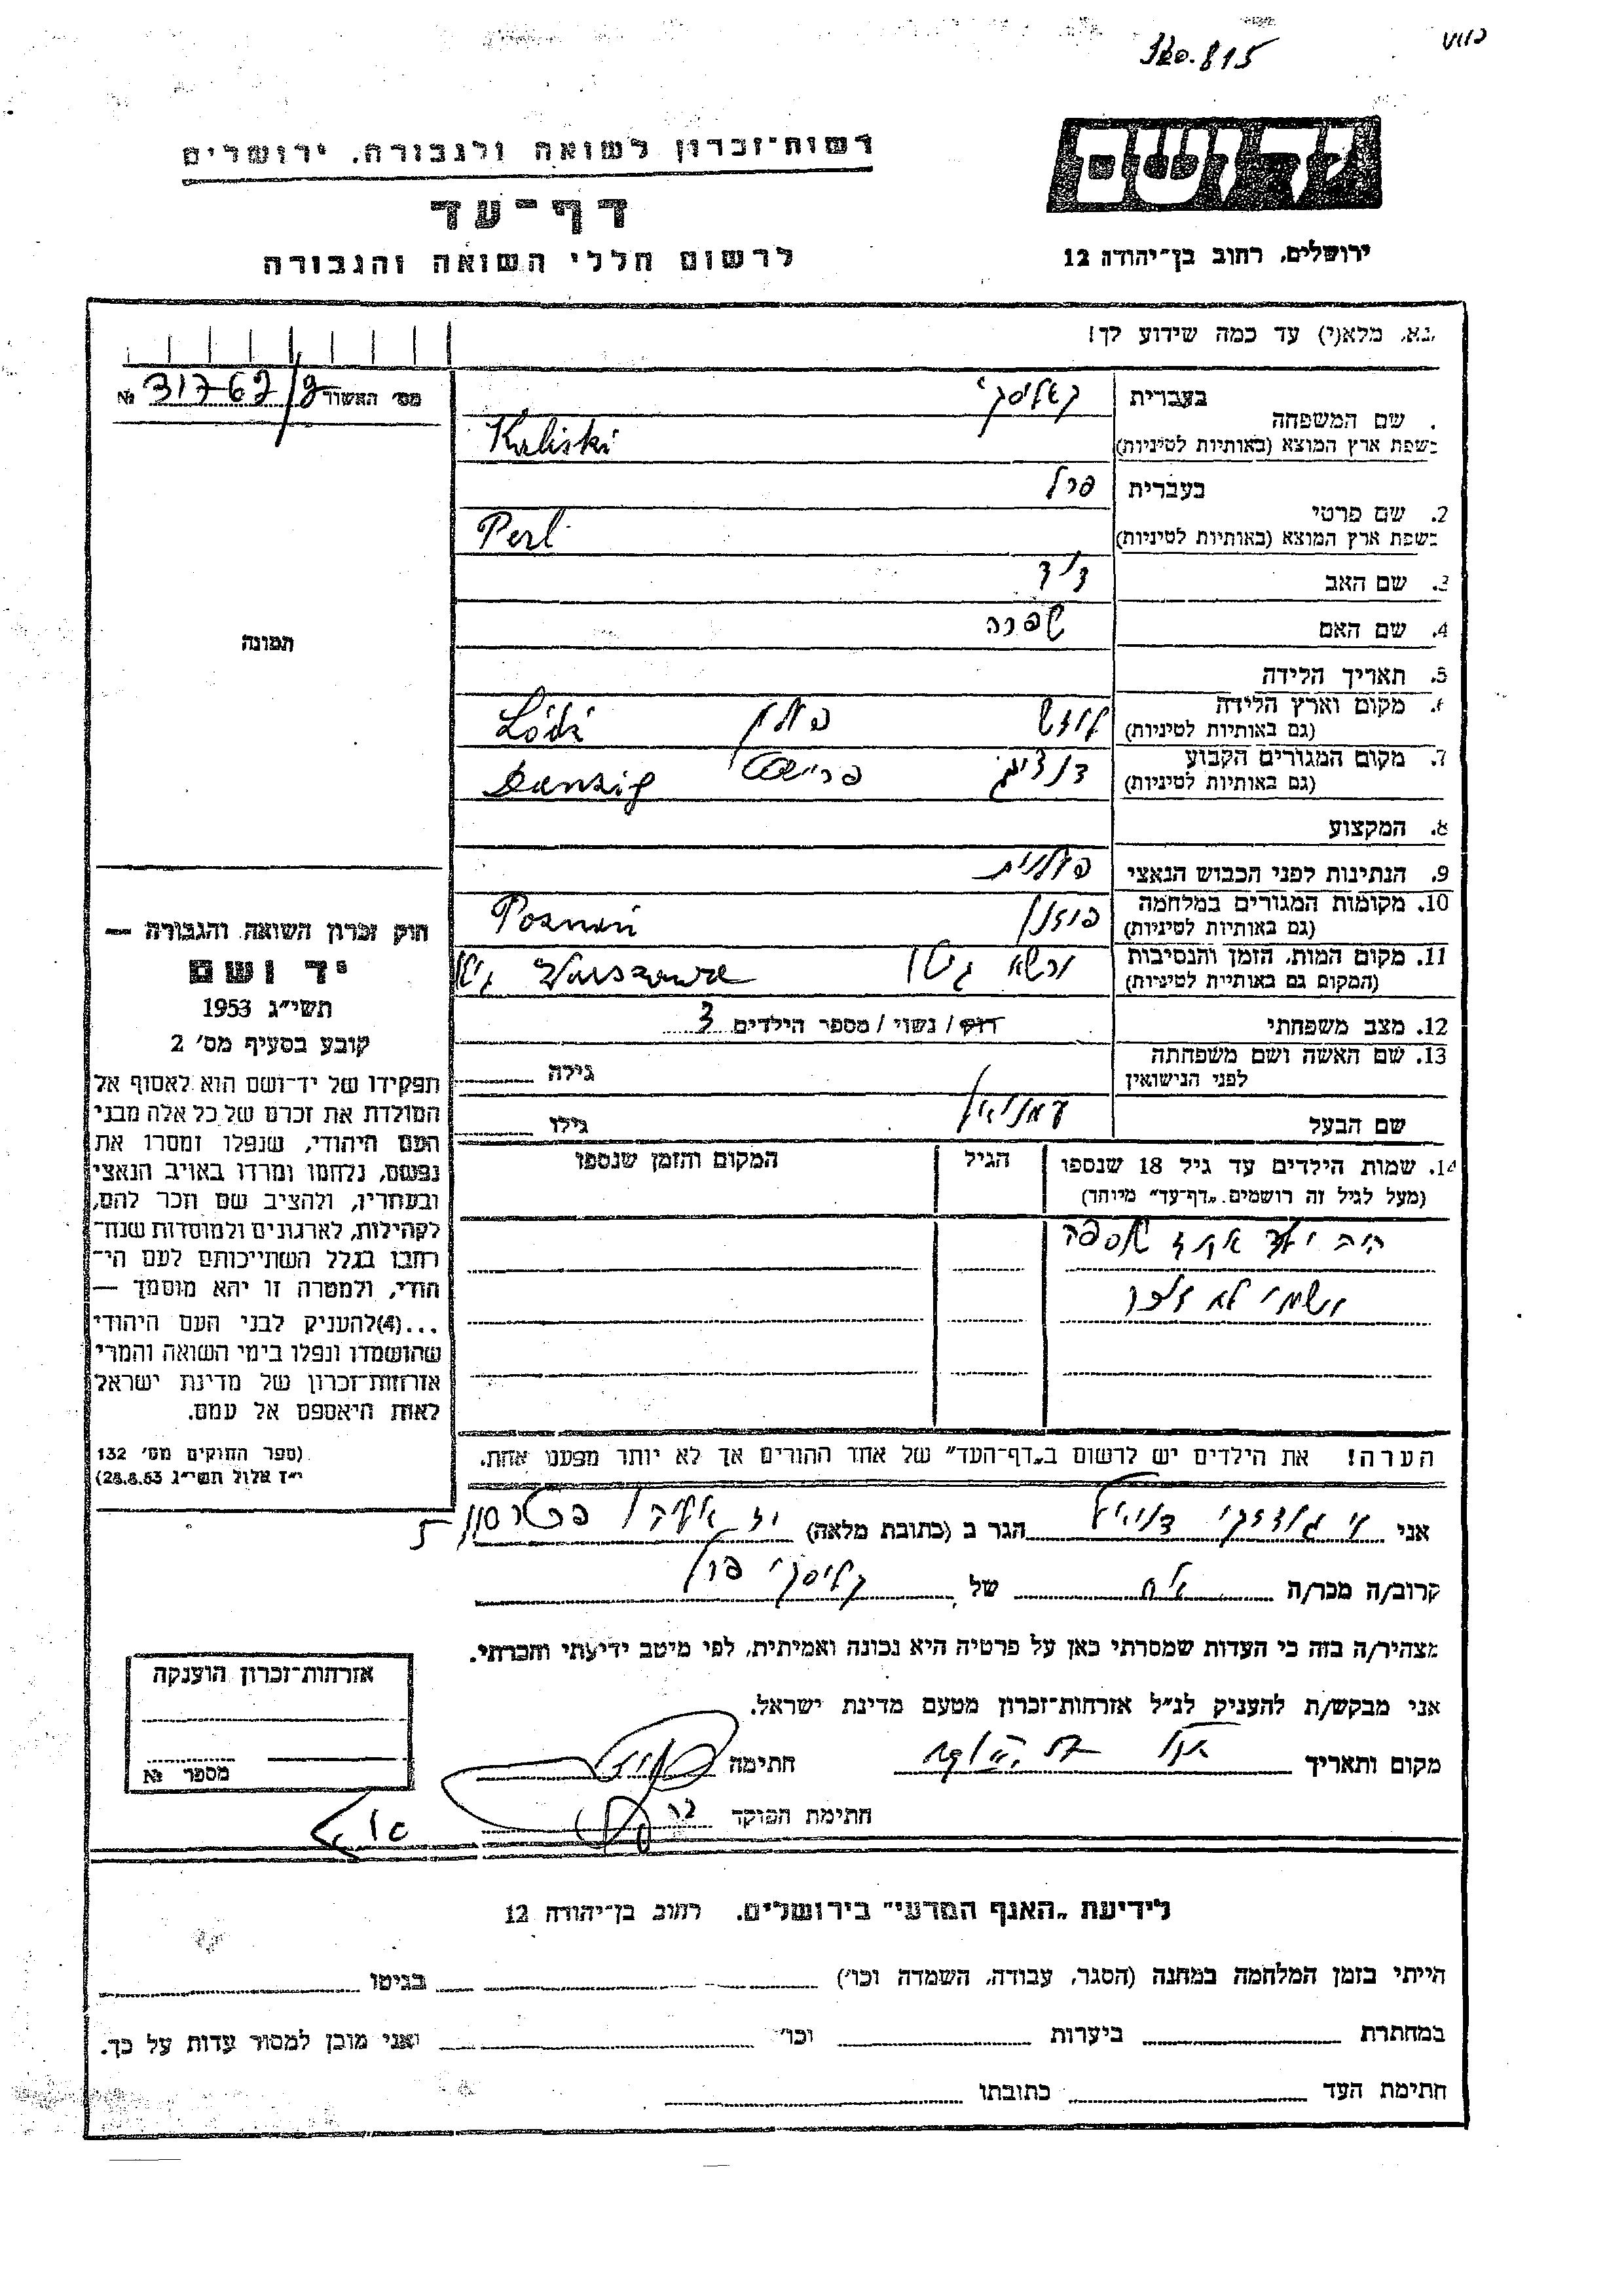 815
רשות־זכרון לשואה ולגבורה, ירושלים
דף־עד
לרשום חללי השואה והגבורה
יד ושם
ירושלים, רחוב בן־יהודה 12
נא, מלא(י) עד כמה שידוע לך!
מס׳ האשור 31767/9 №
בעברית
1. שם המשפחה
בשפת ארץ המוצא (באותיות לטיניות) Kaliski
בעברית פרל
2. שם פרטי
בשפת ארץ המוצא (באותיות לטיניות) Perl
3. שם האב דוד
4. שם האם שפרה
5. תאריך הלידה
6. מקום וארץ הלידה לודז פולין Łódź
(גם באותיות לטיניות)
7. מקום המגורים הקבוע דנציג Danzig
(גם באותיות לטיניות)
8. המקצוע
9. הנתינות לפני הכבוש הנאצי פולנית
10. מקומות המגורים במלחמה פוזנן Poznań
(גם באותיות לטיניות)
11. מקום המות, הזמן והנסיבות ורשא גיטו Warszawa גיטו
(המקום גם באותיות לטיניות)
12. מצב משפחתי רווק / נשוי / מספר הילדים 3
13. שם האשה ושם משפחתה
לפני הנישואין גילה
שם הבעל עמנואל גילו
14. שמות הילדים עד גיל 18 שנספו הגיל המקום והזמן שנספו
(מעל לגיל זה רושמים „דף־עד״ מיוחד)
היה ילד אחד שנספה
ושמו לא זכור
הערה! את הילדים יש לרשום ב„דף־העד״ של אחד ההורים אך לא יותר מפעם אחת.
תמונה
חוק זכרון השואה והגבורה —
יד ושם
תשי״ג 1953
קובע בסעיף מס׳ 2
תפקידו של יד־ושם הוא לאסוף אל
המולדת את זכרם של כל אלה מבני
העם היהודי, שנפלו ומסרו את
נפשם, נלחמו ומרדו באויב הנאצי
ובעוזריו, ולהציב שם וזכר להם,
לקהילות, לארגונים ולמוסדות שנח־
רבו בגלל השתייכותם לעם הי־
הודי, ולמטרה זו יהא מוסמך —
...(4)להעניק לבני העם היהודי
שהושמדו ונפלו בימי השואה והמרי
אזרחות־זכרון של מדינת ישראל
לאות היאספם אל עמם.
(ספר החוקים מס׳ 132
י״ז אלול תשי״ג 28.8.53)
אני דניאל הגר ב (כתובת מלאה) יד אליהו פטרסון 5
קרוב/ה מכר/ה אח של קליסקי פרל
מצהיר/ה בזה כי העדות שמסרתי כאן על פרטיה היא נכונה ואמיתית, לפי מיטב ידיעתי והכרתי.
אני מבקש/ת להעניק לנ״ל אזרחות־זכרון מטעם מדינת ישראל.
מקום ותאריך חתימה
חתימת הפוקד
אזרחות־זכרון הוענקה
מספר №
לידיעת „האגף המדעי״ בירושלים, רחוב בן־יהודה 12
הייתי בזמן המלחמה במחנה (הסגר, עבודה, השמדה וכו׳) בגיטו
במחתרת ביערות וכו׳ ואני מוכן למסור עדות על כך.
חתימת העד כתובתו